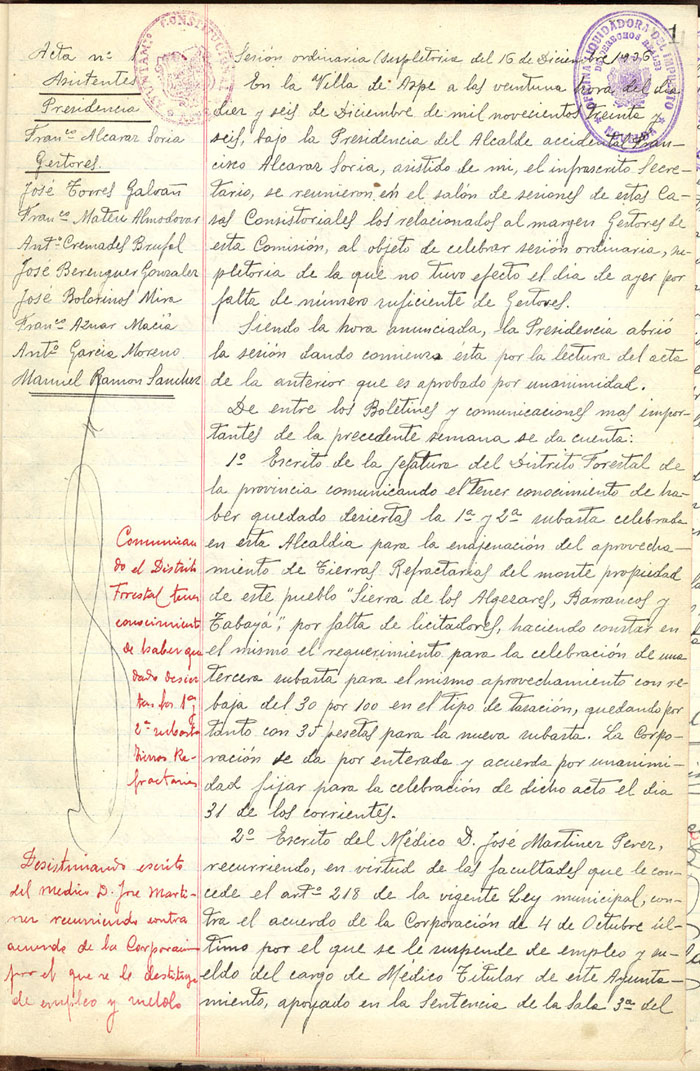 1
Acta nº 1
Asistentes
Presidencia
Franco Alcaraz Soria
Gestores.
José Torres Galván
Franco Mateu Almodovar
Antº Cremades Brufal
José Berenguer Gonzalez
José Bolarinos Mira
Franco Aznar Maciá
Antº Garcia Moreno
Manuel Ramon Sanchez
AYUNTAMº CONSTITUCIONAL
OFICINA LIQUIDADORA DEL IMPUESTO
DE DERECHOS REALES
NOVELDA
Sesión ordinaria (supletoria del 16 de Diciembre 1936
En la Villa de Aspe a las veintiuna hora del dia
diez y seis de Diciembre de mil novecientos treinta y
seis, bajo la Presidencia del Alcalde accidental Fran-
cisco Alcaraz Soria, asistido de mi, el infrascrito Secre-
tario, se reunieron en el salón de sesiones de estas Ca-
sas Consistoriales los relacionados al margen Gestores de
esta Comisión, al objeto de celebrar sesión ordinaria, su-
pletoria de la que no tuvo efecto el dia de ayer por
falta de número suficiente de Gestores.
Siendo la hora anunciada, la Presidencia abrió
la sesión dando comienzo ésta por la lectura del acta
de la anterior que es aprobado por unanimidad.
De entre los Boletines y comunicaciones mas impor-
tantes de la precedente semana se da cuenta:
1º Escrito de la Jefatura del Distrito Forestal de
la provincia comunicando el tener conocimiento de ha-
ber quedado desiertas la 1ª y 2ª subasta celebrada
en esta Alcaldia para la enajenación del aprovecha-
miento de Tierras Refractarias del monte propiedad
de este pueblo "Sierra de los Algezares, Barrancos y
Tabaya", por falta de licitadores, haciendo constar en
el mismo el requerimiento para la celebración de una
tercera subasta para el mismo aprovechamiento con re-
baja del 30 por 100 en el tipo de tasación, quedando por
tanto con 35 pesetas para la nueva subasta. La Corpo-
ración se da por enterada y acuerda por unanimi-
dad fijar para la celebración de dicho acto el dia
31 de los corrientes.
2º Escrito del Médico D. José Martinez Perez,
recurriendo, en virtud de las facultades que le con-
cede el artº 218 de la vigente Ley municipal, con-
tra el acuerdo de la Corporación de 4 de Octubre úl-
timo por el que se le suspende de empleo y su-
eldo del cargo de Médico Titular de este Ayunta-
miento, apoyado en la Sentencia de la Sala 3ª del
Comunican
do el Distrito
Forestal tener
conocimiento
de haber que
dado desier
tas las 1ª y
2ª subasta
Tierras Re-
fractarias
Desestimando escrito
del medico D. Jose Marti-
nez recurriendo contra
acuerdo de la Corporacion
por el que se le destituye
de empleo y sueldo